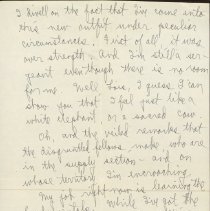 I dwell on the fact that I've come into
this new outfit under peculiar
circumstances. First of all, it was
over strength. And I'm still a ser-
geant even though there is no room
for me. Well Sue, I guess I can
show you that I feel just like a
white elephant or a sacred cow.
Oh, and the veiled remarks that
the disgruntled fellows make, who are
in the supply section - and on
whose territory I'm encroaching.
My job right now is learning the
While I've got the